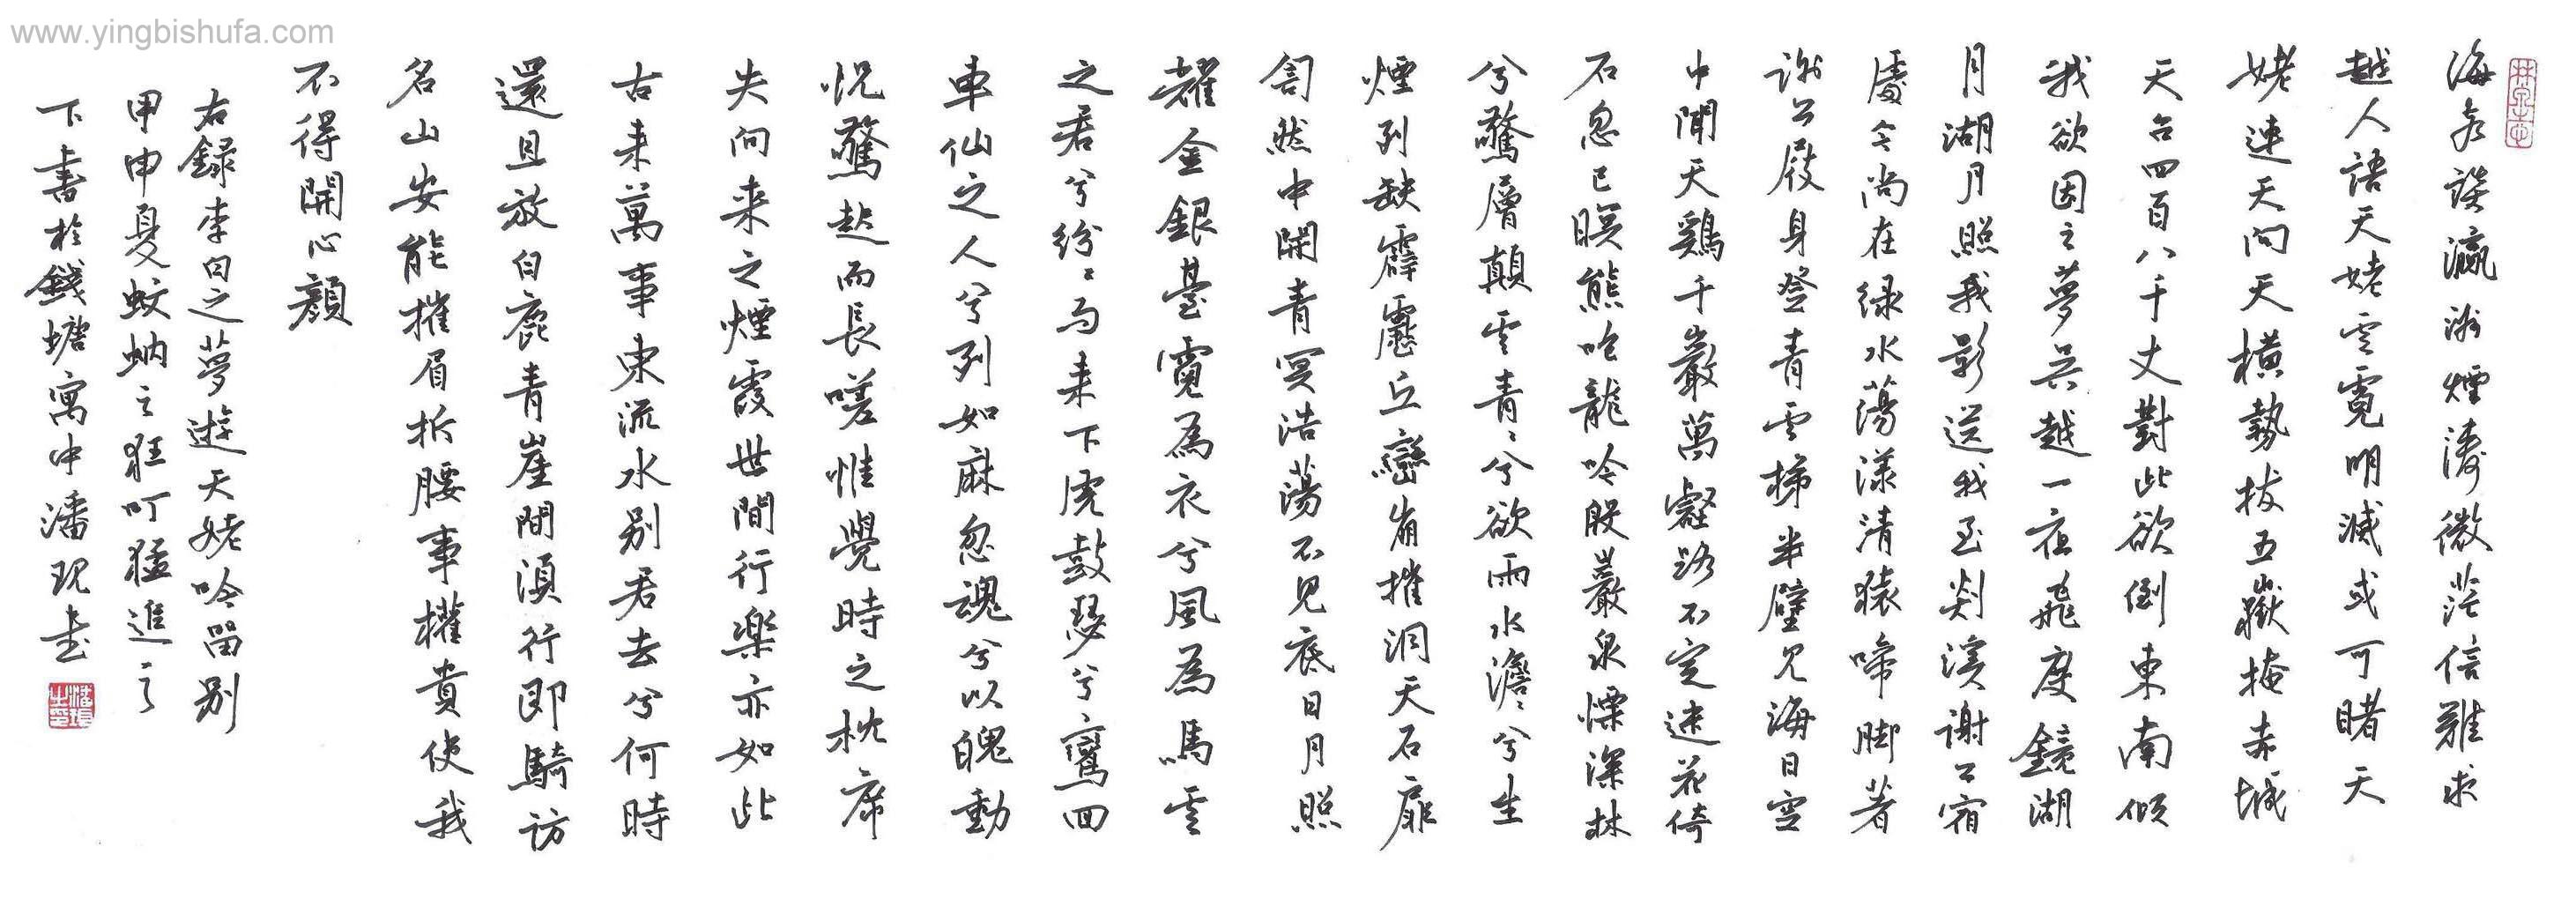 www.yingbishufa.com
海客談瀛洲煙濤微茫信難求
越人語天姥雲霓明滅或可睹天
姥連天向天橫勢拔五嶽掩赤城
天台四百八千丈對此欲倒東南傾
我欲因之夢吳越一夜飛度鏡湖
月湖月照我影送我至剡溪謝公宿
處今尚在綠水蕩漾清猿啼腳著
謝公屐身登青雲梯半壁見海日空
中聞天鷄千巖萬壑路不定迷花倚
石忽已暝熊咆龍吟殷巖泉慄深林
兮驚層巔雲青〻兮欲雨水澹〻兮生
煙列缺霹靂丘巒崩摧洞天石扉
訇然中開青冥浩蕩不見底日月照
耀金銀臺霓為衣兮風為馬雲
之君兮紛〻而來下虎鼓瑟兮鸞回
車仙之人兮列如麻忽魂兮以魄動
怳驚起而長嗟惟覺時之枕席
失向来之煙霞世間行樂亦如此
古来萬事東流水别君去兮何時
還且放白鹿青崖間須行即騎訪
名山安能摧眉折腰事權貴使我
不得開心顏
右録李白之夢遊天姥吟留别
甲申夏蚊蚋之狂叮猛進之
下書於錢塘寓中潘玑書